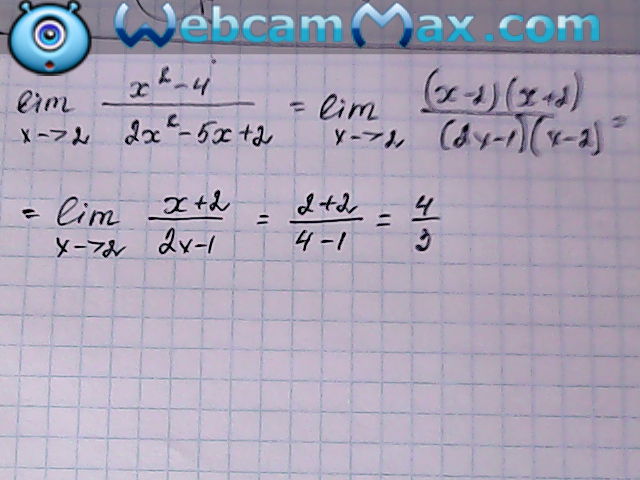 WebcamMax.com
lim x->2 (x²-4)/(2x²-5x+2) = lim x->2 ((x-2)(x+2))/((2x-1)(x-2)) =
= lim x->2 (x+2)/(2x-1) = (2+2)/(4-1) = 4/3